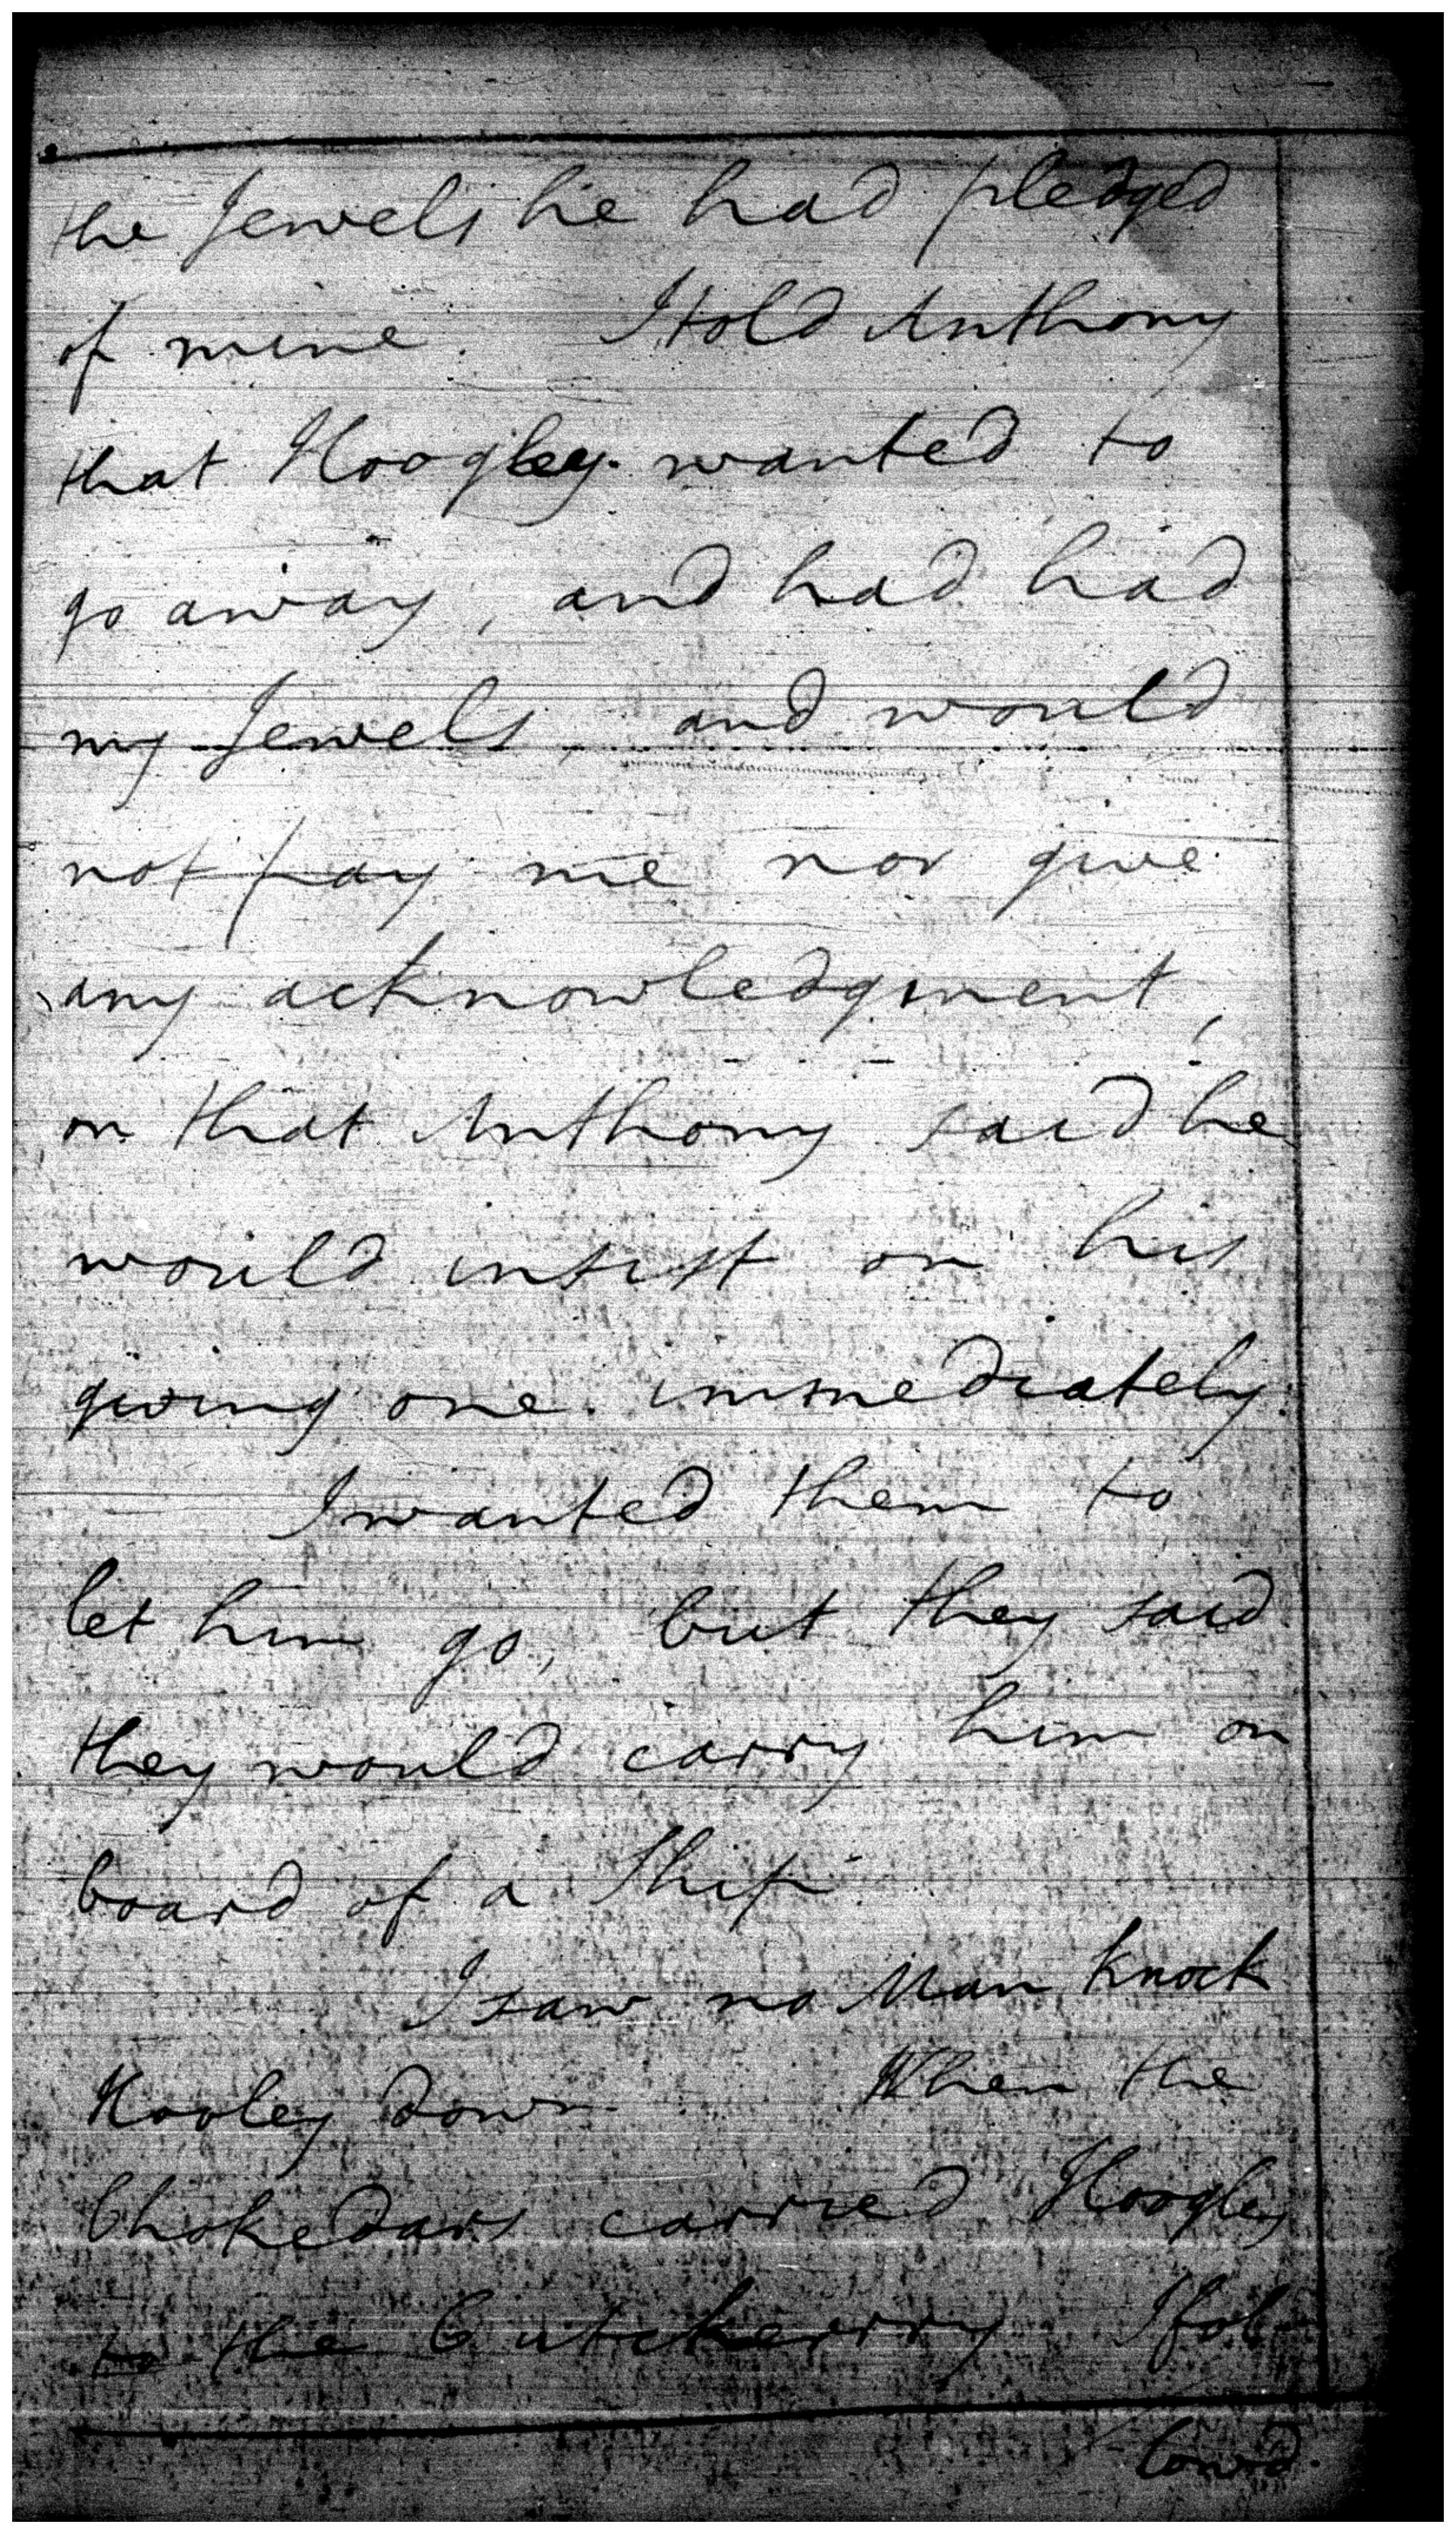 the Jewels he had pledged
of mine. I told Anthony
that Hoogley wanted to
go away, and had had
my Jewels, and would
not pay me nor give
any acknowledgment,
on that Anthony said he
would insist on his
giving one immediately.
I wanted them to
let him go, but they said
they would carry him on
board of a Ship.
I saw no Man knock
Hooley down. When the
Chokedars carried Hoogley
to the Cutcherry I fol